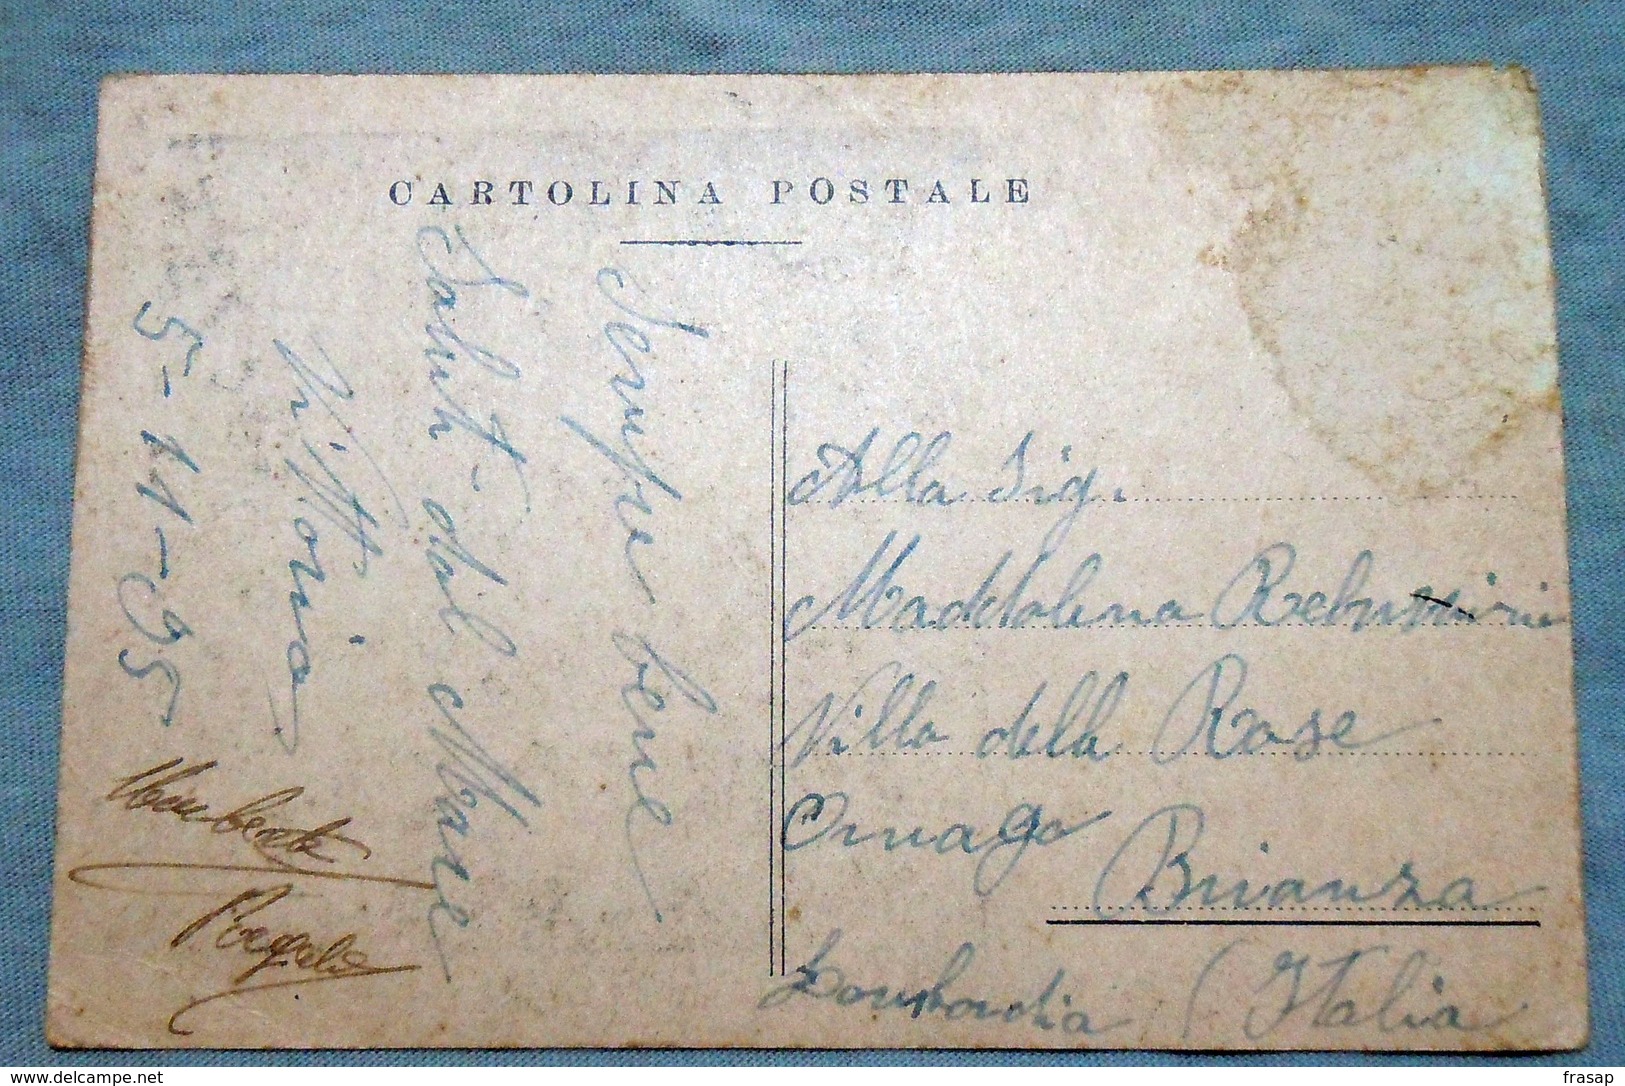 CARTOLINA POSTALE
Sempre bene
Saluti dal Mare
Vittoria
5-11-35
Umberto
Alla Sig.
Maddalena
Villa della Rose
Ornago
Brianza
Lombardia (Italia
https://www.delcampe.net
frasap